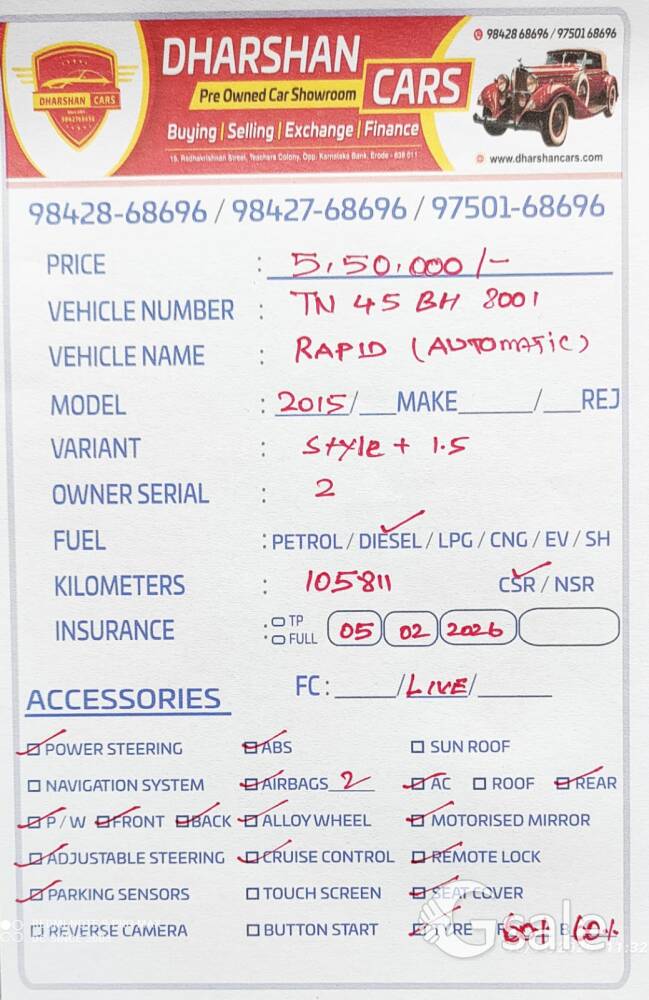 98428 68696 / 97501 68696
DHARSHAN CARS
Pre Owned Car Showroom
Buying | Selling | Exchange | Finance
15, Radhakrishnan Street, Teachers Colony, Opp. Karnataka Bank, Erode - 638 011
www.dharshancars.com
DHARSHAN CARS
98428-68696 / 98427-68696 / 97501-68696
PRICE : 5,50,000/-
VEHICLE NUMBER : TN 45 BH 8001
VEHICLE NAME : RAPID (AUTOMATIC)
MODEL : 2015/__MAKE______/__REJ
VARIANT : Style + 1.5
OWNER SERIAL : 2
FUEL : PETROL / DIESEL / LPG / CNG / EV / SH
KILOMETERS : 105811 CSR / NSR
INSURANCE : TP FULL 05 02 2026
FC : _____/LIVE/______
ACCESSORIES
POWER STEERING ABS SUN ROOF
NAVIGATION SYSTEM AIRBAGS 2 AC ROOF REAR
P / W FRONT BACK ALLOY WHEEL MOTORISED MIRROR
ADJUSTABLE STEERING CRUISE CONTROL REMOTE LOCK
PARKING SENSORS TOUCH SCREEN SEAT COVER
REVERSE CAMERA BUTTON START TYRE F 60% B
Gsale